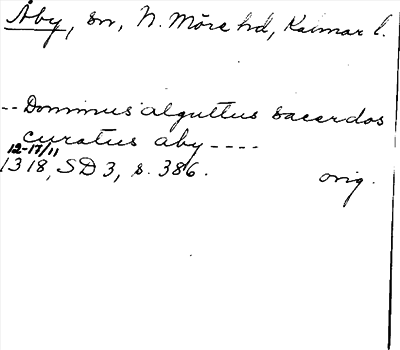 Åby, sn, N. Möre hd, Kalmar l.
-- Dominus alguttus sacerdos
curatus aby ----
12-17/11
1318, SD 3, s. 386. orig.